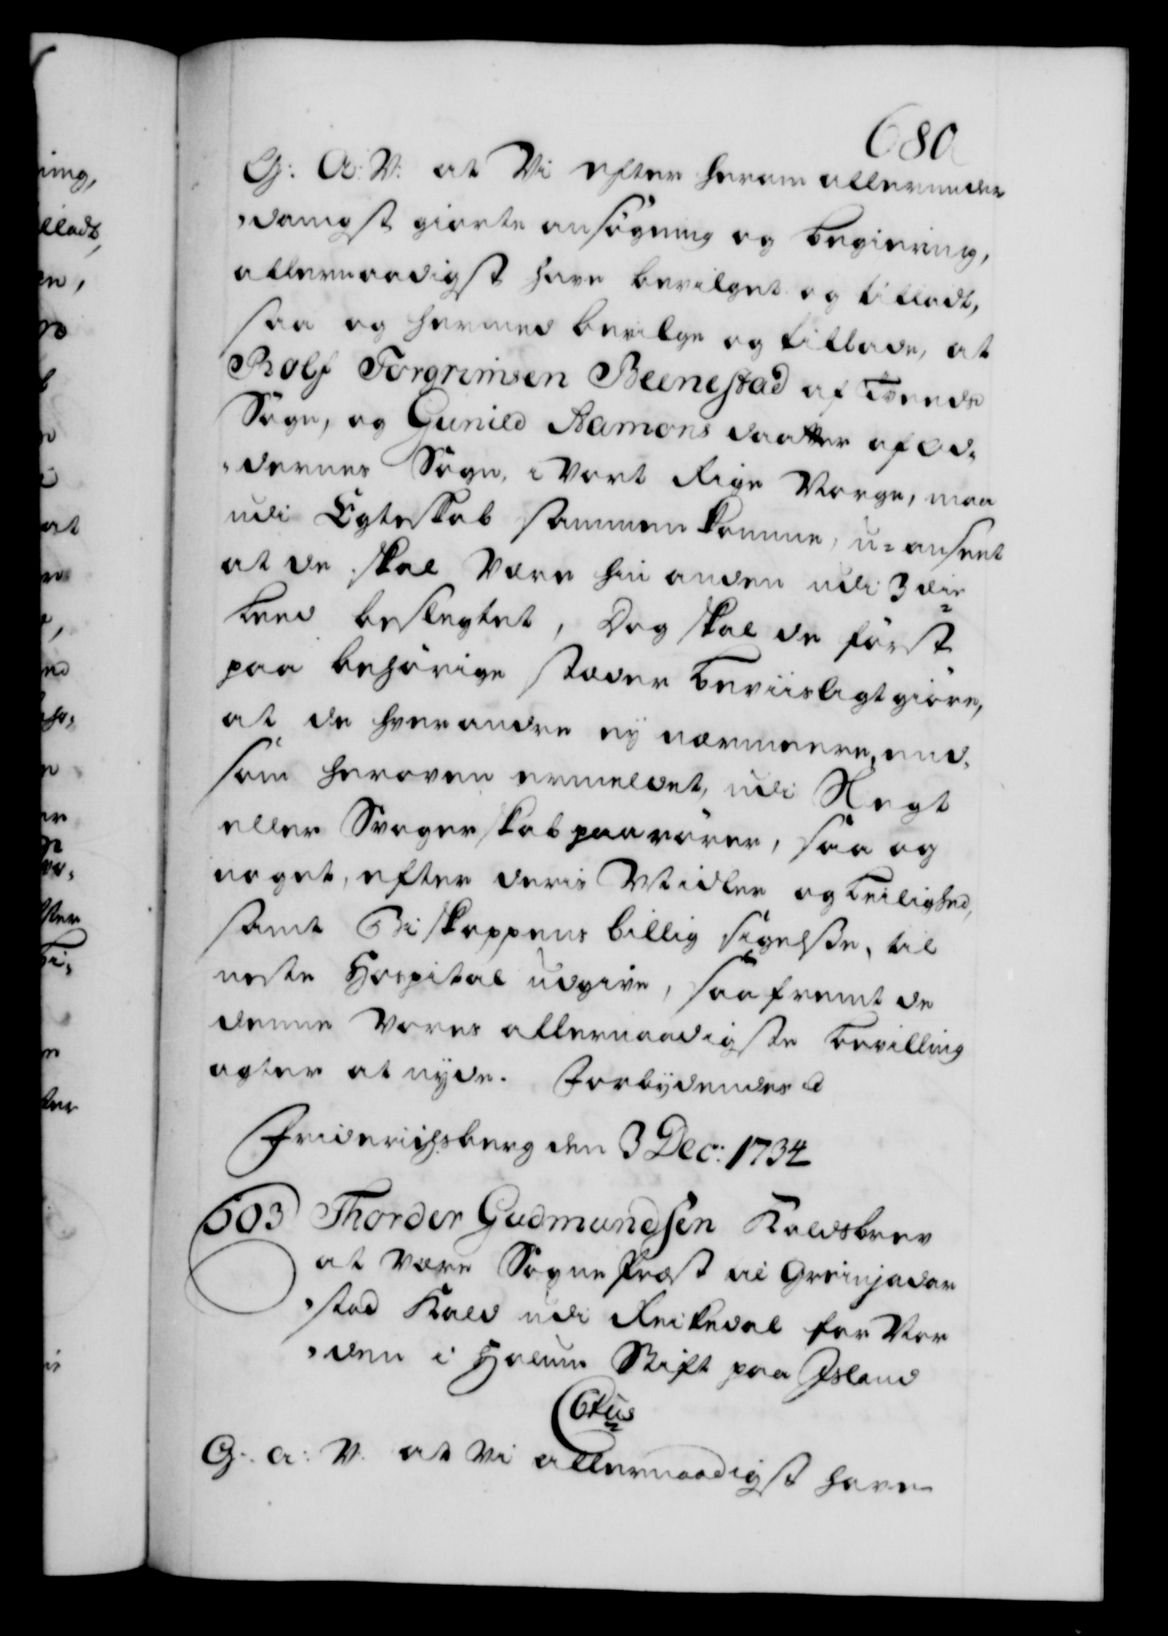 680
G: A: V: at Vi efter herom allerunder
-danigst giorte ansøgning og begiering,
allernaadigst have bevilget og tilladt,
saa og hermed bevilge og tillade, at
Rolf Torgrimsen Beenestad af Tveede
Sogn, og Gunild Aamons daatter af Od-
-dernes Sogn, i Vort Rige Norge, maa
udi Egteskab sammenkomme, u-anseet
at de skal være hin anden udi 3die
Leed beslegtet, Dog skal de først
paa behørige stæder beviisligt giøre,
at de hverandre ey nærmere, end
som heroven ermeldet, udi Slegt
eller Svogerskab paarører, saa og
noget, efter deris Midler og Leilighed,
samt Biskoppens billig sigelse, til
neste Hospital udgive, saafremt de
denne Vores allernaadigste bevilling
agter at nyde. Forbydendes
Friderichsberg den 3 Dec: 1734
603 Thorder Gudmundsen Kaldsbrev
at være Sogne Præst til Greinjadar
-stad Kald udi Reikedal for Nor
-den i Holum Stift paa Jsland
C6tus
G: A: V: at Vi allernaadigst have